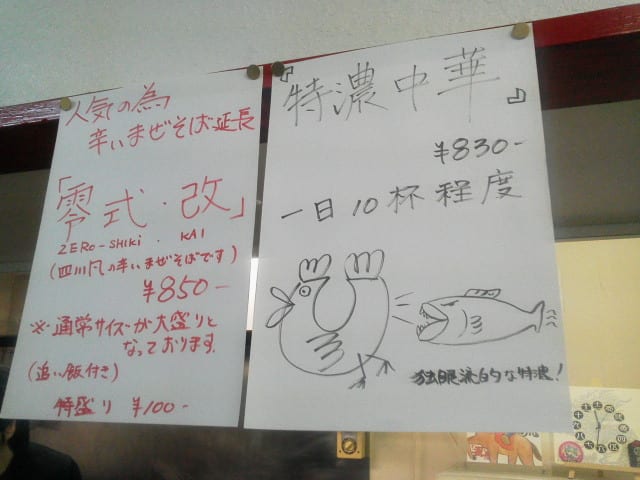 人気の為
辛いまぜそば延長
「零式・改」
ZERO-SHIKI . KAI
(四川風の辛いまぜそばです)
¥850-
※通常サイズが大盛りと
なっております。
(追い飯付き)
特盛り ¥100-
『特濃中華』
¥830-
一日10杯程度
独眼流的な特濃!